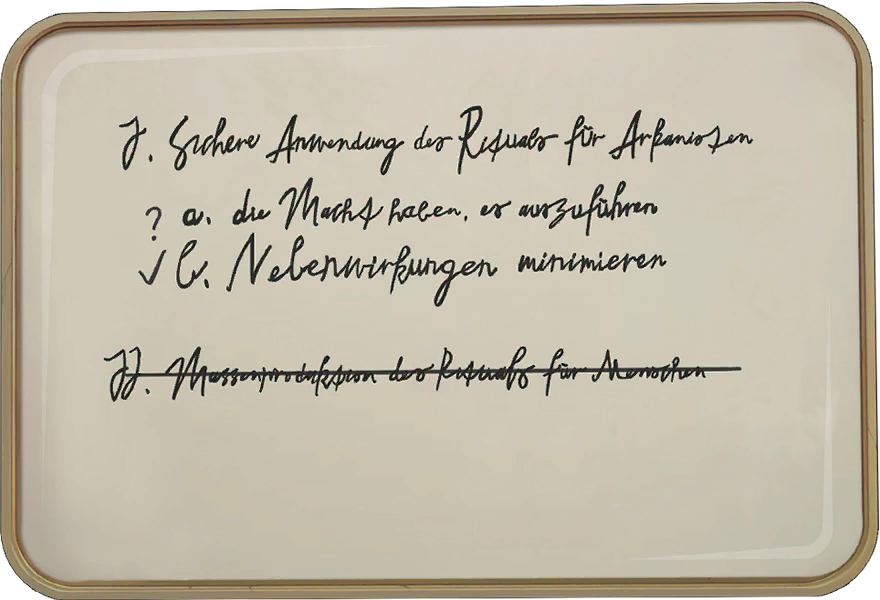 I. Sichere Anwendung des Rituals für Arkanisten
? a. die Macht haben, es auszuführen
✓ b. Nebenwirkungen minimieren
II. Massenproduktion des Rituals für Menschen